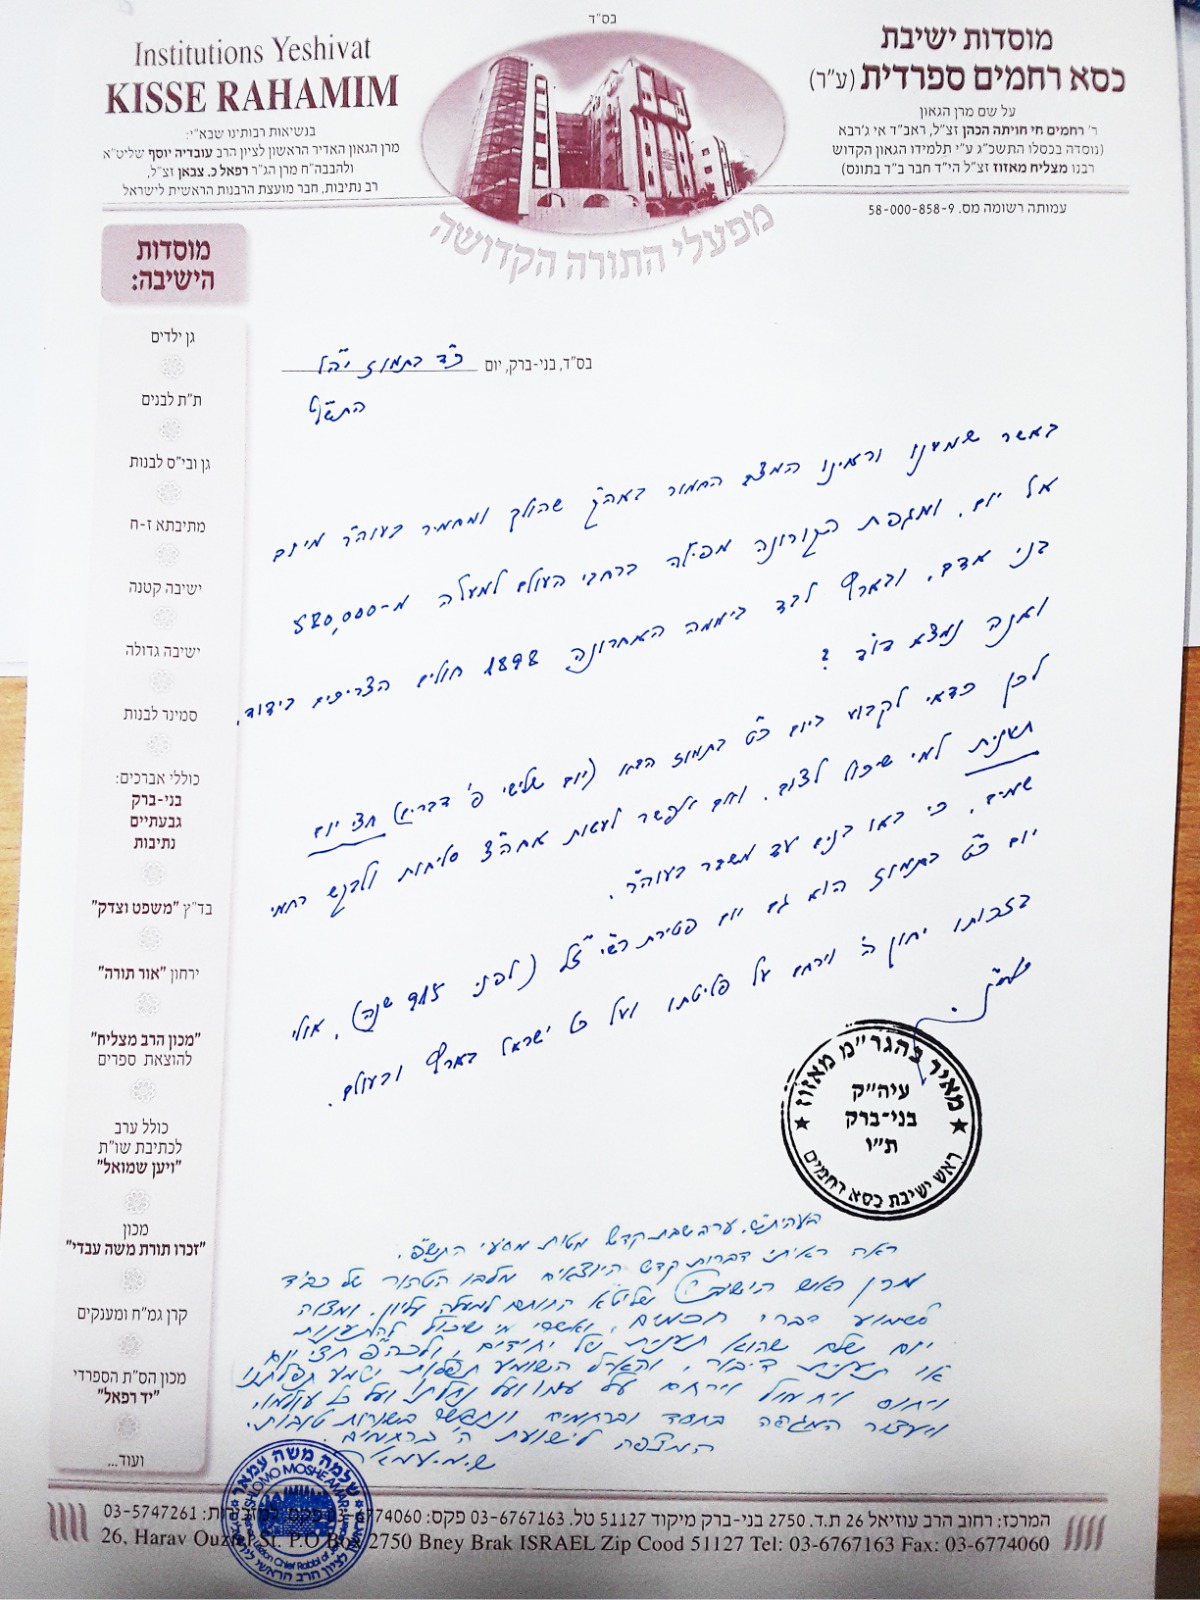 בס"ד
Institutions Yeshivat
KISSE RAHAMIM
בנשיאות רבותינו שבא"י:
מרן הגאון האדיר הראשון לציון הרב עובדיה יוסף שליט"א
ולהבבה"ח מרן הג"ר רפאל כ. צבאן זצ"ל,
רב נתיבות, חבר מועצת הרבנות הראשית לישראל
מוסדות ישיבת
כסא רחמים ספרדית (ע"ר)
על שם מרן הגאון
ר' רחמים חי חויתה הכהן זצ"ל, ראב"ד אי ג'רבא
(נוסדה בכסלו התשכ"ג ע"י תלמידו הגאון הקדוש
רבנו מצליח מאזוז זצ"ל הי"ד חבר ב"ד בתונס)
עמותה רשומה מס. 58-000-858-9
מפעלי התורה הקדושה
מוסדות
הישיבה:
גן ילדים
ת"ת לבנים
גן ובי"ס לבנות
מתיבתא ז-ח
ישיבה קטנה
ישיבה גדולה
סמינר לבנות
כוללי אברכים:
בני-ברק
גבעתיים
נתיבות
בד"ץ "משפט וצדק"
ירחון "אור תורה"
"מכון הרב מצליח"
להוצאת ספרים
כולל ערב
לכתיבת שו"ת
"ויען שמואל"
מכון
"זכרו תורת משה עבדי"
קרן גמ"ח ומענקים
מכון הס"ת הספרדי
"יד רפאל"
ועוד...
בס"ד, בני-ברק, יום כ"ד בתמוז
באשר שמענו וראינו המצב החמור באה"ק שהולך ומחמיר בעוה"ר מיום
אל יום, ומגפת הקורונה מפילה ברחבי העולם למעלה מ-580,000
בני אדם, ובארץ לבד ביממה האחרונה 1898 חולים הצריכים בידוד,
ואנה נמצא דוד?
לכן כדאי לקבוע ביום כ"ט בתמוז הבא (יום שלישי פ' דברים) חצי יום
תענית למי שיכול לצום, ואם אפשר לעשות אחה"צ סליחות ולבקש רחמי
שמים, כי באו בנים עד משבר בעוה"ר.
יום כ"ט בתמוז הוא גם יום פטירת רש"י זצ"ל (לפני 915 שנה), אולי
בזכותו יחון ה' וירחם על פליטתו ועל כל ישראל בארץ ובעולם.
מאיר בהגר"מ מאזוז
עיה"ק
בני-ברק
ת"ו
ראש ישיבת כסא רחמים
בעהית"ש. ערה שבת קדש מטות מסעי התש"פ.
ראה ראיתי דברות קדש היוצאים מלבו הטהור של כב'ד
מרן ראש הישיבה שליט"א החותם למעלה עליון, ומצוה
לשמוע דברי חכמים, ואשרי מי שיכול להתענות
יום שלם שהוא תענית של יחידים, ולכה"פ חצי יום
או תענית דיבור, והא-ל השומע תפלות ישמע תפלתנו
ויחוס ויחמול וירחם על עמו ועל נחלתו ועל כל עולמו,
ויעצור המגפה בחסד וברחמים ונתבשר בשורות טובות.
המצפה לישועת ה' ברחמים.
שלמה משה עמאר
SHLOMO MOSHE AMAR
המרכז: רחוב הרב עוזיאל 26 ת.ד. 2750 בני-ברק מיקוד 51127 טל. 03-6767163 פקס: 03-6774060 03-5747261
26, Harav Ouziel St. P.O Box 2750 Bney Brak ISRAEL Zip Cood 51127 Tel: 03-6767163 Fax: 03-6774060